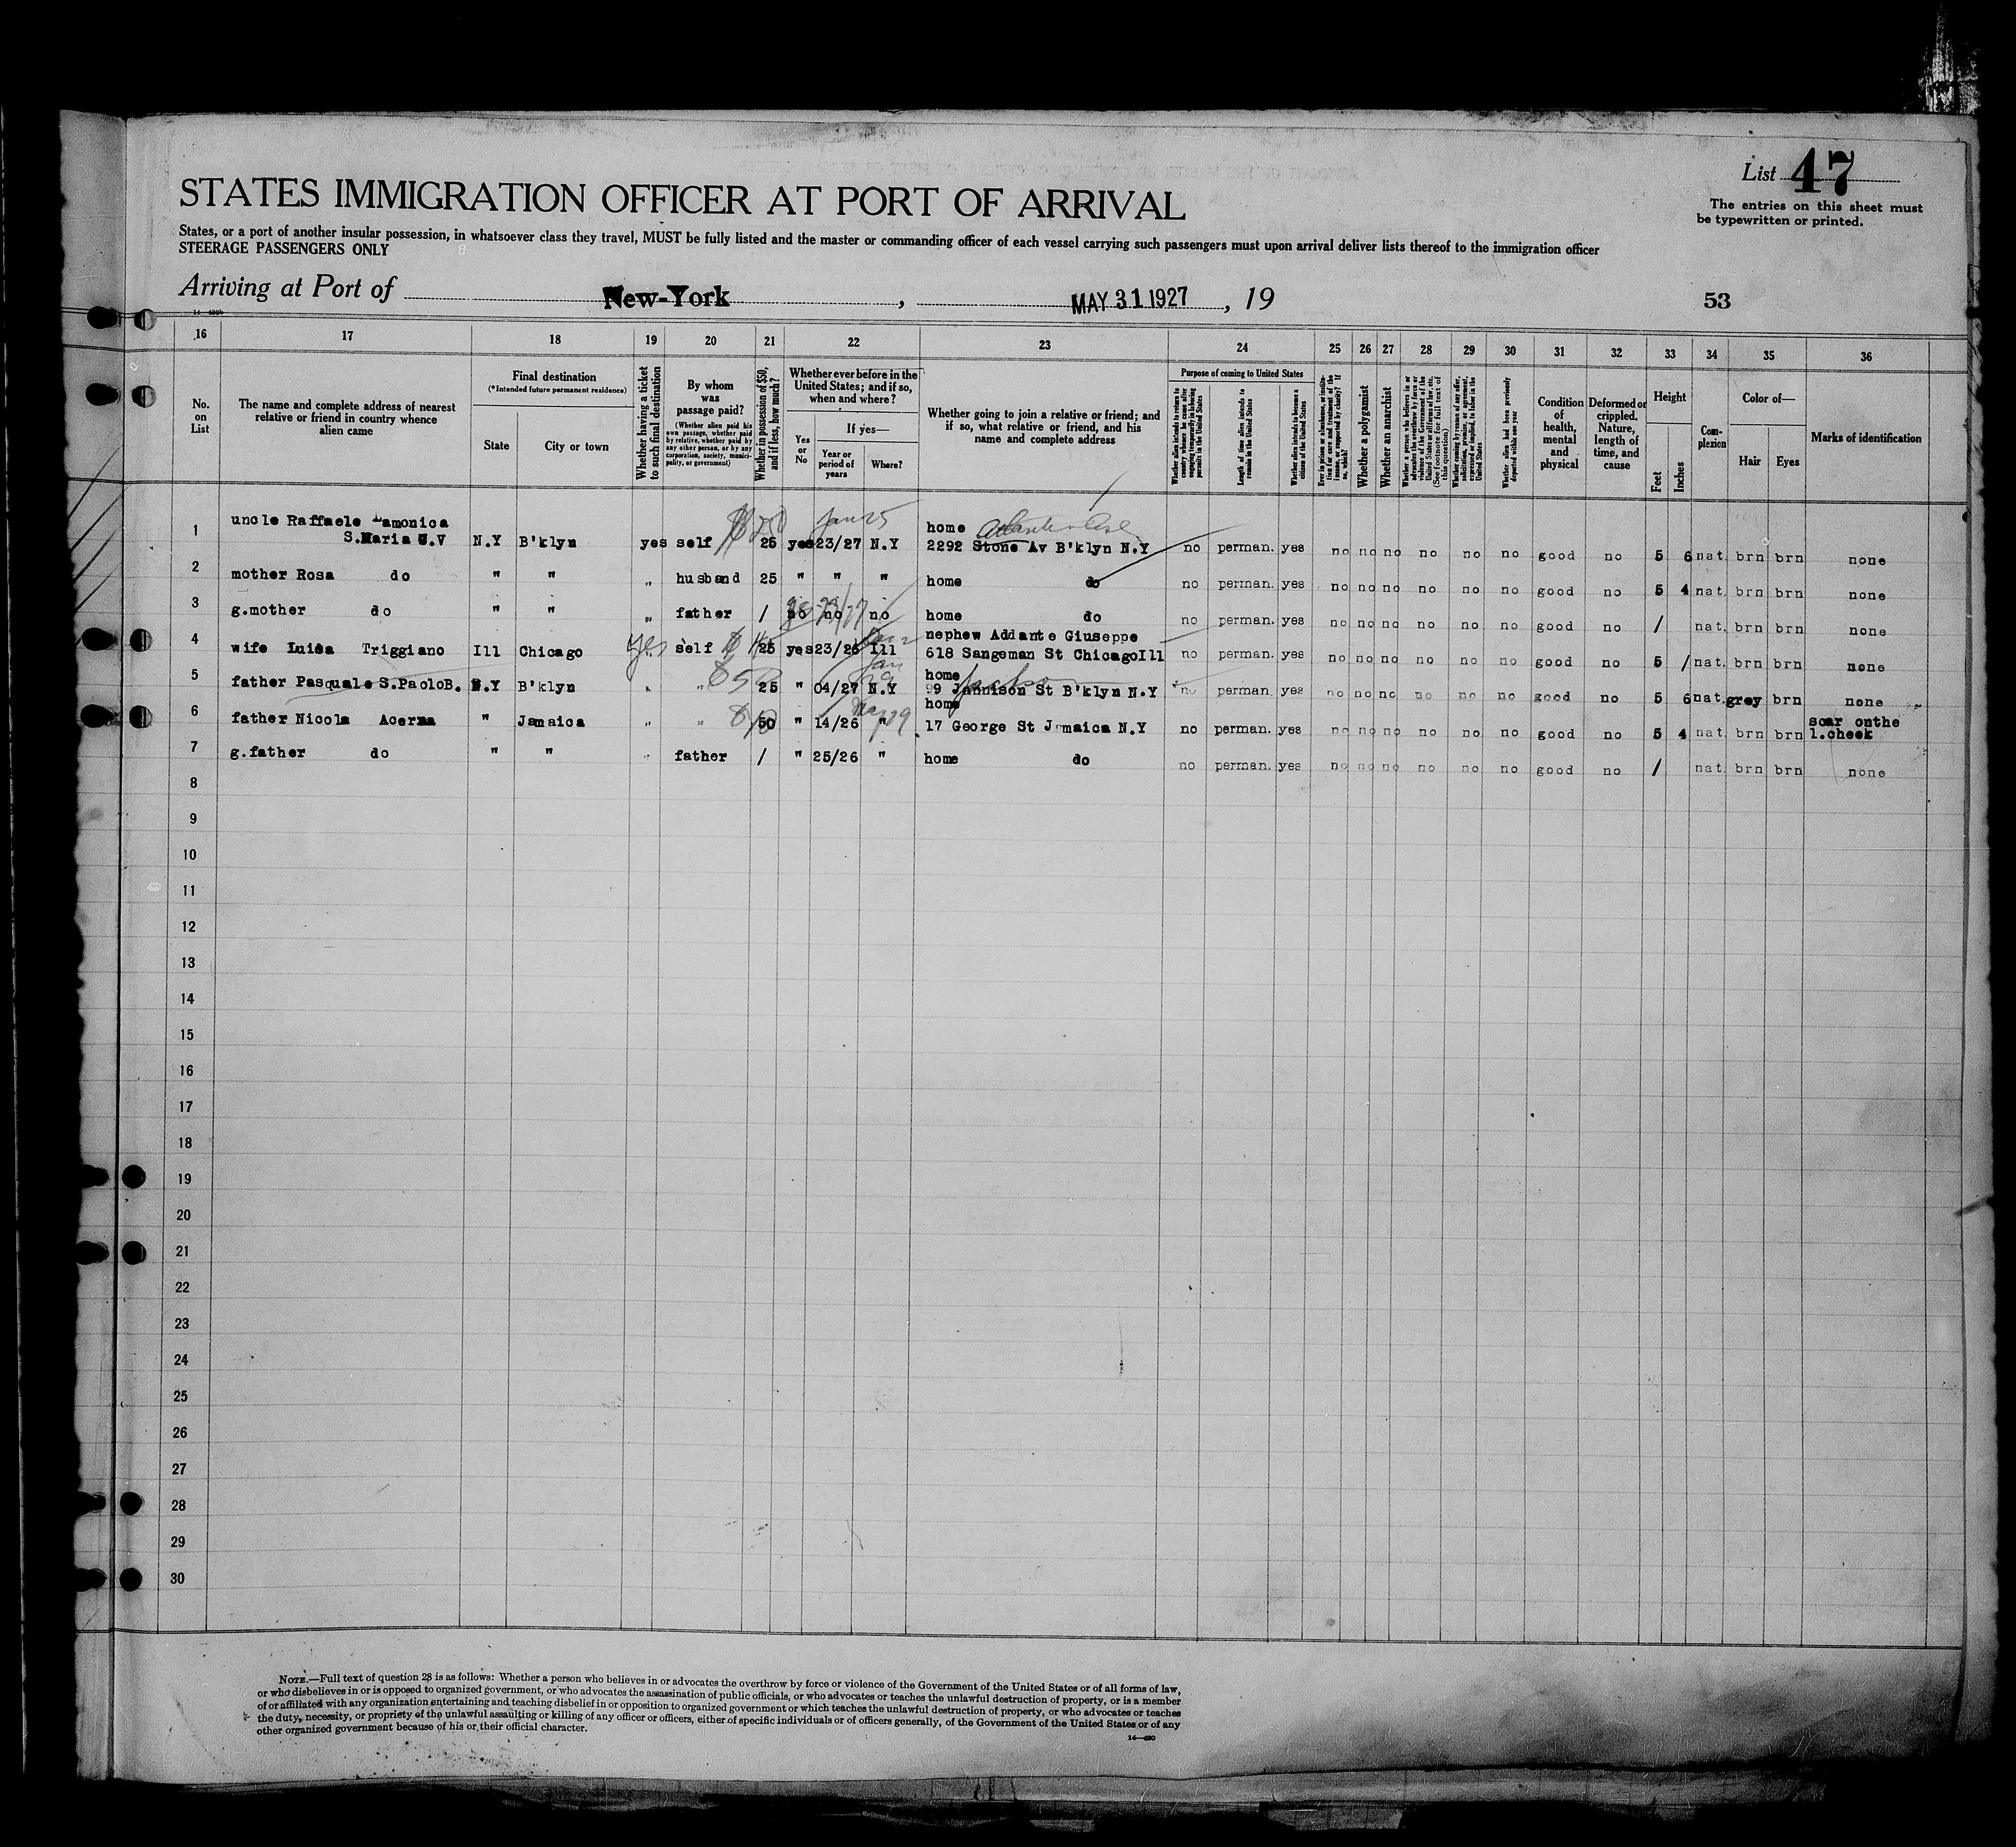 List 47
The entries on this sheet must
be typewritten or printed.
STATES IMMIGRATION OFFICER AT PORT OF ARRIVAL
States, or a port of another insular possession, in whatsoever class they travel, MUST be fully listed and the master or commanding officer of each vessel carrying such passengers must upon arrival deliver lists thereof to the immigration officer
STEERAGE PASSENGERS ONLY
Arriving at Port of New-York, MAY 31 1927, 19 53
16 17 18 19 20 21 22 23 24 25 26 27 28 29 30 31 32 33 34 35 36
No. on List
The name and complete address of nearest relative or friend in country whence alien came
Final destination
(*Intended future permanent residence)
State
City or town
Whether having a ticket to such final destination
By whom was passage paid?
(Whether alien paid his own passage, whether paid by relative, whether paid by any other person, or by any corporation, society, municipality, or government)
Whether in possession of $50, and if less, how much?
Whether ever before in the United States; and if so, when and where?
Yes or No
If yes—
Year or period of years
Where?
Whether going to join a relative or friend; and if so, what relative or friend, and his name and complete address
Purpose of coming to United States
Length of time alien intends to remain in the United States
Whether alien intends to become a citizen of the United States
Whether a polygamist
Whether an anarchist
Whether alien had been previously deported within one year
Condition of health, mental and physical
Deformed or crippled. Nature, length of time, and cause
Height
Feet
Inches
Complexion
Color of—
Hair
Eyes
Marks of identification
1 uncle Raffaele Lamonica S.Maria C.V N.Y B'klyn yes self 25 yes 23/27 N.Y home 2292 Stone Av B'klyn N.Y no perman. yes no no no no no no good no 5 6 nat. brn brn none
2 mother Rosa do " " " husband 25 " " " home do no perman. yes no no no no no no good no 5 4 nat. brn brn none
3 g.mother do " " " father / no no no home do no perman. yes no no no no no no good no / nat. brn brn none
4 wife Luisa Triggiano Ill Chicago yes self 25 yes 23/26 Ill nephew Addante Giuseppe 618 Sangeman St Chicago Ill no perman. yes no no no no no no good no 5 / nat. brn brn none
5 father Pasquale S.PaoloB. N.Y B'klyn " " 25 " 04/27 N.Y home 99 Jannison St B'klyn N.Y no perman. yes no no no no no no good no 5 6 nat. grey brn none
6 father Nicola Acerna " Jamaica " " 50 " 14/26 " home 17 George St Jamaica N.Y no perman. yes no no no no no no good no 5 4 nat. brn brn scar onthe l.cheek
7 g.father do " " " father / " 25/26 " home do no perman. yes no no no no no no good no / nat. brn brn none
8
9
10
11
12
13
14
15
16
17
18
19
20
21
22
23
24
25
26
27
28
29
30
NOTE.—Full text of question 28 is as follows: Whether a person who believes in or advocates the overthrow by force or violence of the Government of the United States or of all forms of law,
or who disbelieves in or is opposed to organized government, or who advocates the assassination of public officials, or who advocates or teaches the unlawful destruction of property, or is a member
of or affiliated with any organization entertaining and teaching disbelief in or opposition to organized government or which teaches the unlawful destruction of property, or who advocates or teaches
the duty, necessity, or propriety of the unlawful assaulting or killing of any officer or officers, either of specific individuals or of officers generally, of the Government of the United States or of any
other organized government because of his or their official character.
14—420